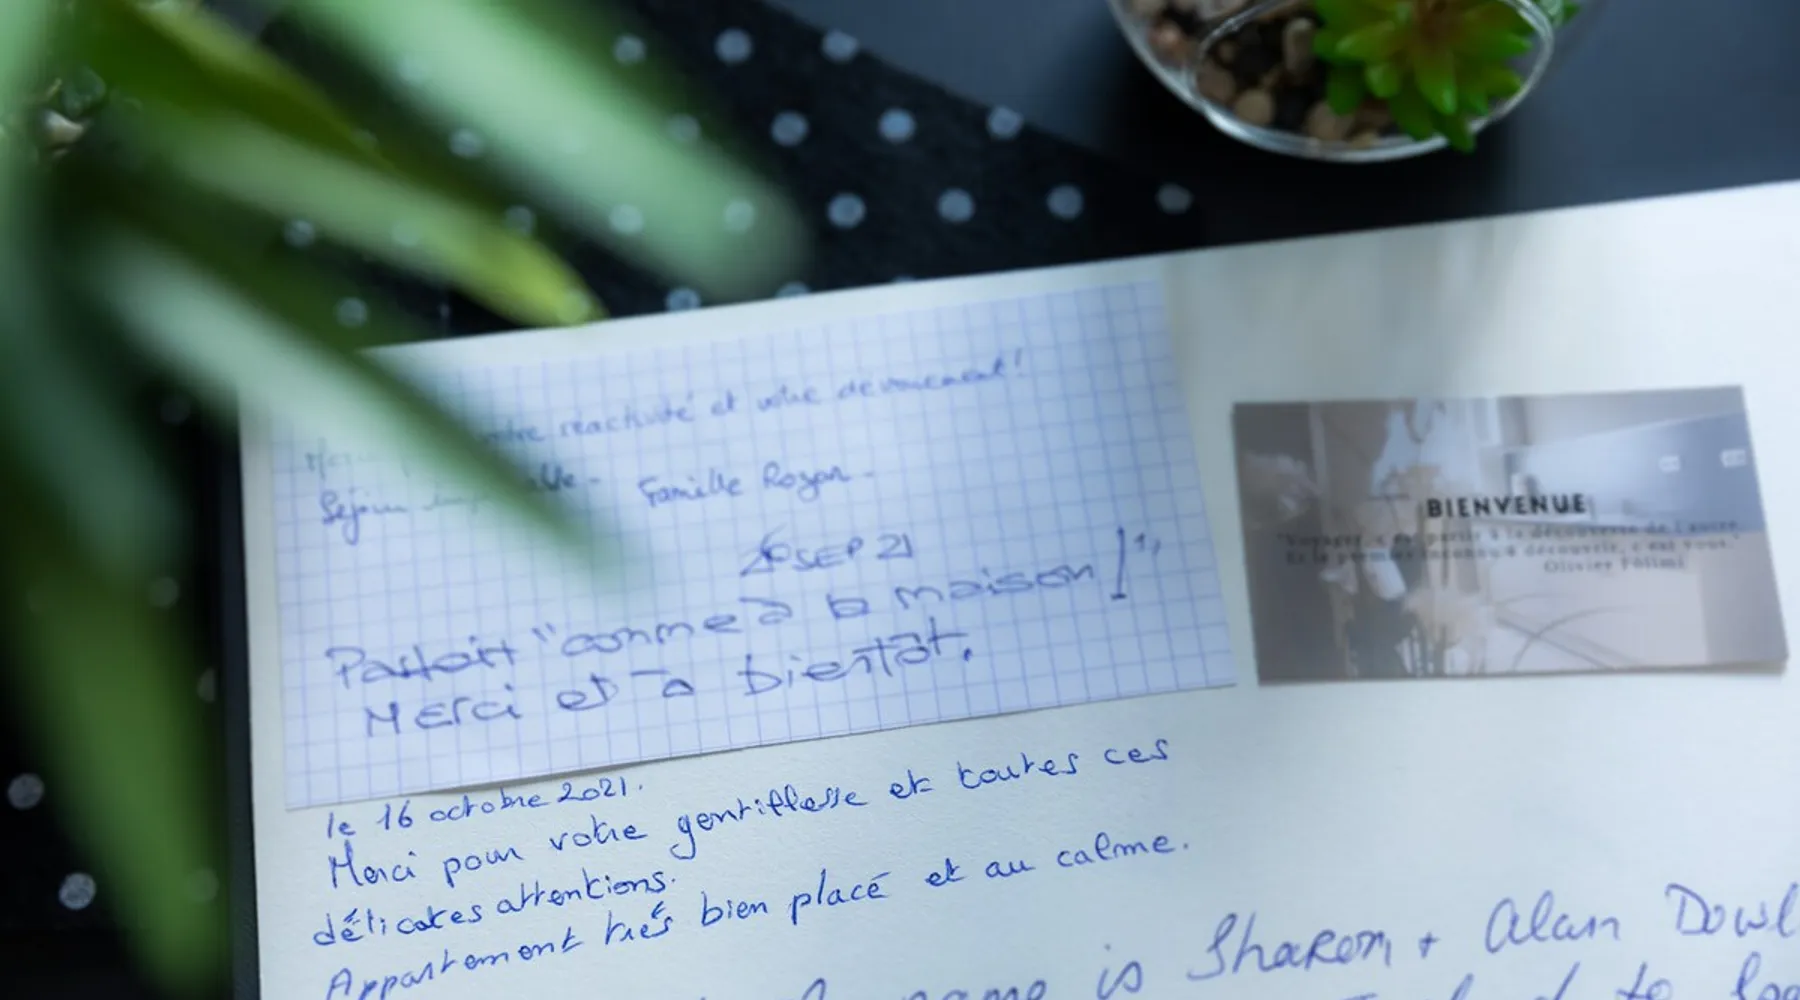 votre réactivité et votre dévouement!
Séjour - Famille Rozan -
SEP 21
Parfait "comme à la maison!"
Merci et à bientôt.
le 16 octobre 2021.
Merci pour votre gentillesse et toutes ces
délicates attentions.
Appartement très bien placé et au calme.
is Sharon + Alan Dowl
to
BIENVENUE
"Voyager, c'est partir à la découverte de l'autre.
Et le premier inconnu à découvrir, c'est vous."
Olivier Föllmi